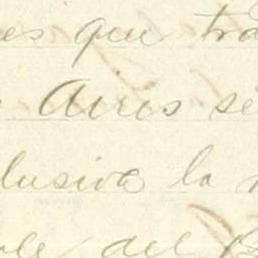 es que tra
Aires se
lusiva la
del